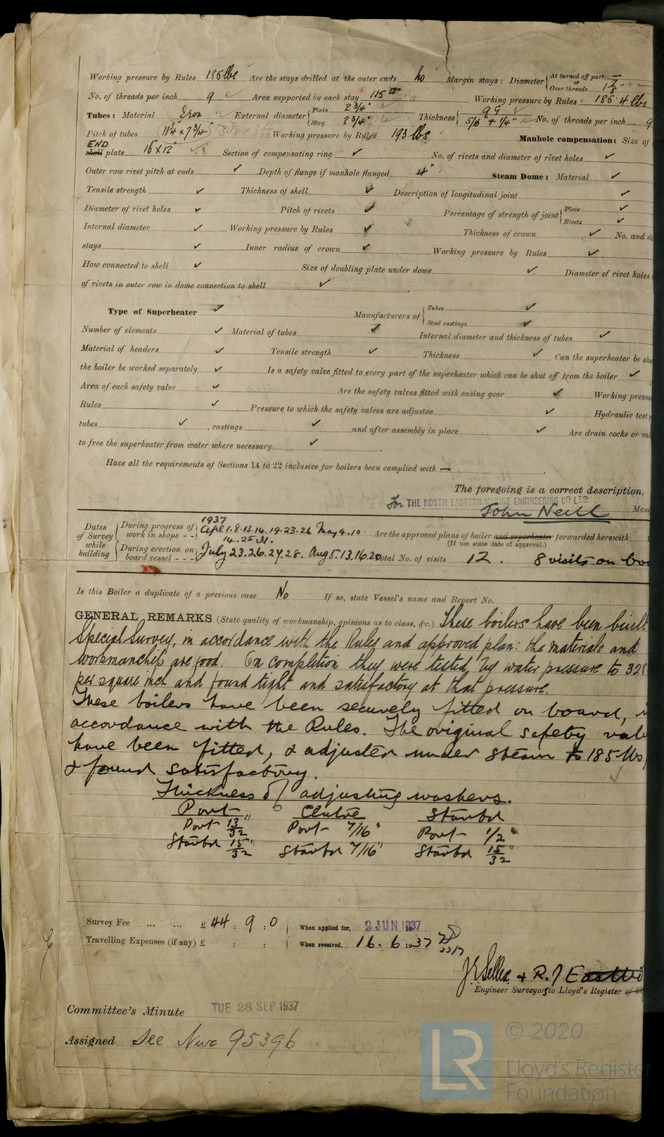 Working pressure by Rules 185 lbs Are the stays drilled at the outer ends no Margin stays: Diameter { At turned off part or Over threads 1 7/8
No. of threads per inch 9 ✓ Area supported by each stay 115 Working pressure by Rules 185.4 lbs
Tubes: Material Iron External diameter { Plain 2 3/4" Stay 2 3/4" Thickness { 9 G 5/16 & 1/4" No. of threads per inch 9
Pitch of tubes 11 1/4 x 7 3/4 Working pressure by Rules 193 lbs Manhole compensation: Size of
END
shell plate 16 x 12" Section of compensating ring ✓ No. of rivets and diameter of rivet holes ✓
Outer row rivet pitch at ends ✓ Depth of flange if manhole flanged 4" Steam Dome: Material ✓
Tensile strength ✓ Thickness of shell ✓ Description of longitudinal joint ✓
Diameter of rivet holes ✓ Pitch of rivets ✓ Percentage of strength of joint { Plate ✓ Rivets ✓
Internal diameter ✓ Working pressure by Rules ✓ Thickness of crown ✓ No. and
stays ✓ Inner radius of crown ✓ Working pressure by Rules ✓
How connected to shell ✓ Size of doubling plate under dome ✓ Diameter of rivet holes
of rivets in outer row in dome connection to shell ✓
Type of Superheater ✓ Manufacturers of { Tubes ✓ Steel castings ✓
Number of elements ✓ Material of tubes ✓ Internal diameter and thickness of tubes ✓
Material of headers ✓ Tensile strength ✓ Thickness ✓ Can the superheater be
the boiler be worked separately ✓ Is a safety valve fitted to every part of the superheater which can be shut off from the boiler ✓
Area of each safety valve ✓ Are the safety valves fitted with easing gear ✓ Working
Rules ✓ Pressure to which the safety valves are adjusted ✓ Hydraulic
tubes ✓ , castings ✓ and after assembly in place ✓ Are drain cocks or
to free the superheater from water where necessary ✓
Have all the requirements of Sections 14 to 22 inclusive for boilers been complied with —
The foregoing is a correct description,
For THE NORTH EASTERN MARINE ENGINEERING CO LTD
John Neill
Dates of Survey while building { During progress of work in shops - - 1937 Apl 1.8.13.14.19.23.26 May 4.10 14.25.31. Are the approved plans of boiler and superheater forwarded herewith
(If not state date of approval.)
During erection on board vessel - - - July 23.26.27.28. Aug 5.13.16.20 Total No. of visits 12. 8 visits on
Is this Boiler a duplicate of a previous case No If so, state Vessel's name and Report No.
GENERAL REMARKS (State quality of workmanship, opinions as to class, &c.) These boilers have been built
Special Survey, in accordance with the Rules and approved plan: the materials and
workmanship are good. On completion they were tested by water pressure to 328
per square inch and found tight and satisfactory at that pressure.
These boilers have been securely fitted on board,
accordance with the Rules. The original safety
have been fitted, & adjusted under steam to 185 lbs
& found satisfactory.
Thickness of adjusting washers.
Port Centre Starbd
Port 13/32" Port 7/16" Port 1/2"
Starbd 15/32" Starbd 7/16" Starbd 15/32"
Survey Fee ... ... £ 44 : 9 : 0 When applied for, JUN 1937
Travelling Expenses (if any) £ : : When received, 16.6.1937
J. R. Sellex & R. J.
Engineer Surveyors to Lloyd's Register of
Committee's Minute TUE 28 SEP 1937
Assigned See Nwc 95396
LR © 2020
Lloyd's Register
Foundation